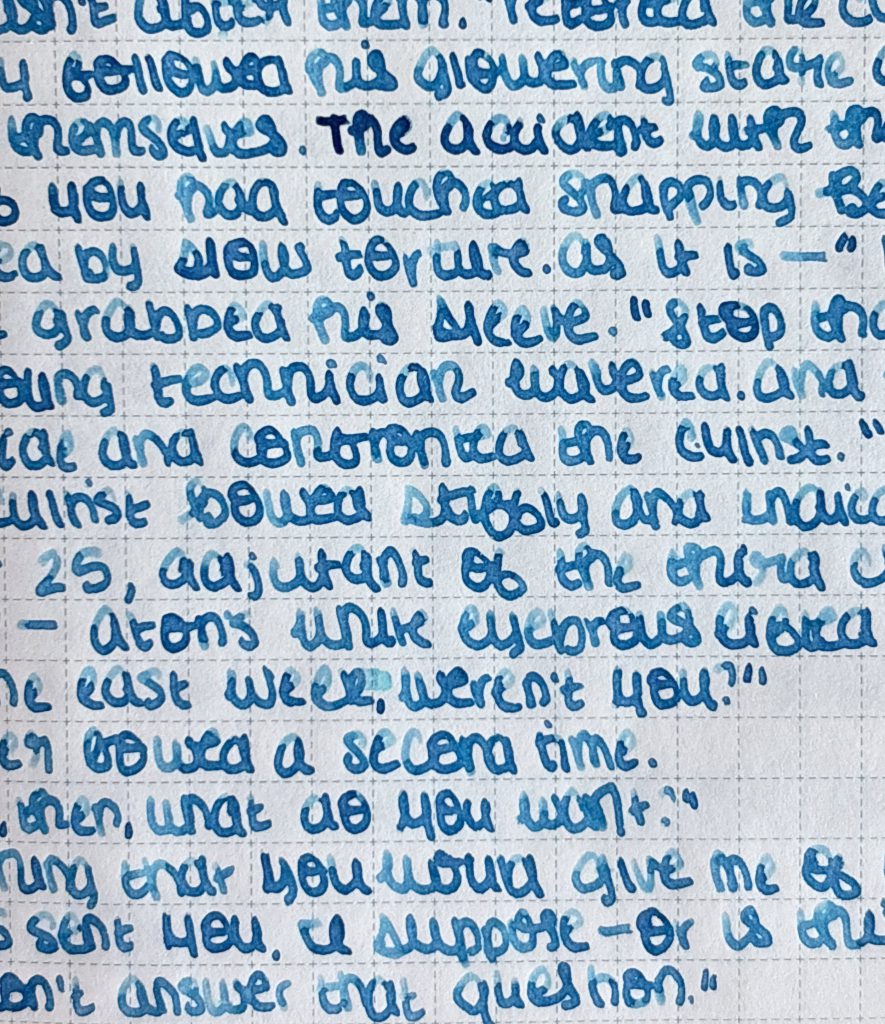 sn't alter them." retorted the c
y followed his glowering stare
themselves. The accident with th
you had touched snapping Be
ed by slow torture. as it is —"
grabbed his sleeve. "Stop tha
oung technician wavered. and
and confronted the cultist."
cultist bowed stiffly and indic
25, adjutant of the third c
— aton's
he last week, weren't you?'"
bowed a second time.
, then, what do you want?"
hing that you would give me of
s sent you. I suppose — or is thi
on't answer that question."